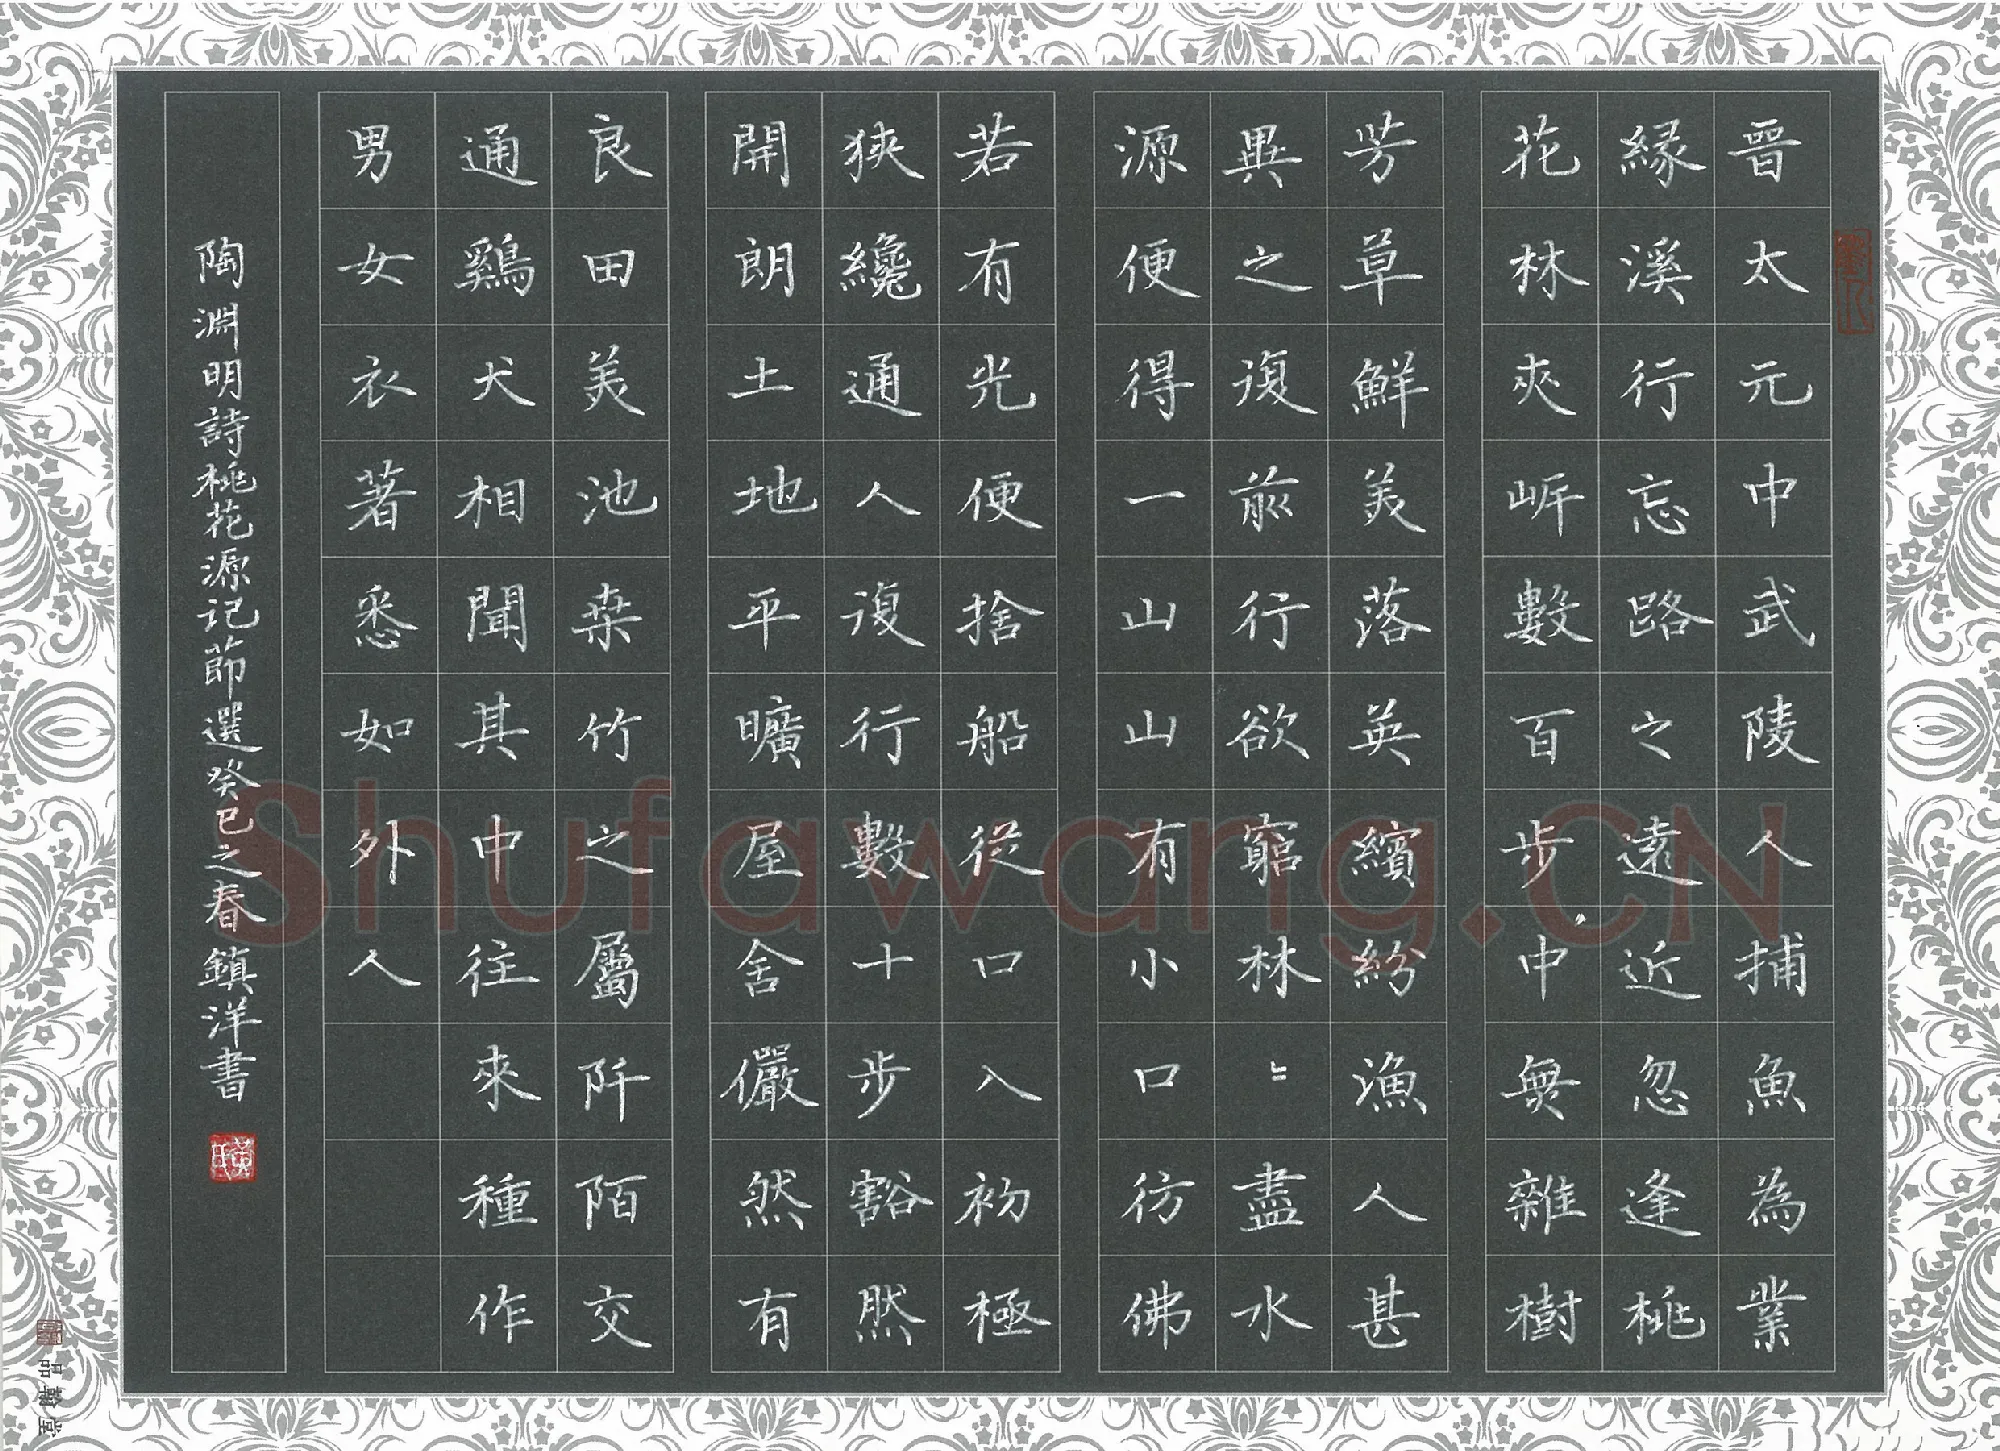 晉太元中武陵人捕魚為業
緣溪行忘路之遠近忽逢桃
花林夾岍數百步中無雜樹
芳草鮮美落英繽紛漁人甚
異之復前行欲窮林〻盡水
源便得一山山有小口彷佛
若有光便捨船從口入初極
狹纔通人復行數十步豁然
開朗土地平曠屋舍儼然有
良田美池桑竹之屬阡陌交
通鷄犬相聞其中往來種作
男女衣著悉如外人
陶淵明詩桃花源记節選癸巳之春鎮洋書
Shufawang.CN